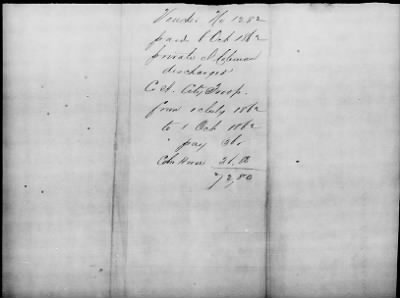 Voucher No 1282
paid 6 Oct 1862
private Coleman
discharged
Co A. City Troop.
from 1 July 1862
to 1 Oct 1862
pay 36
Horse
72,80